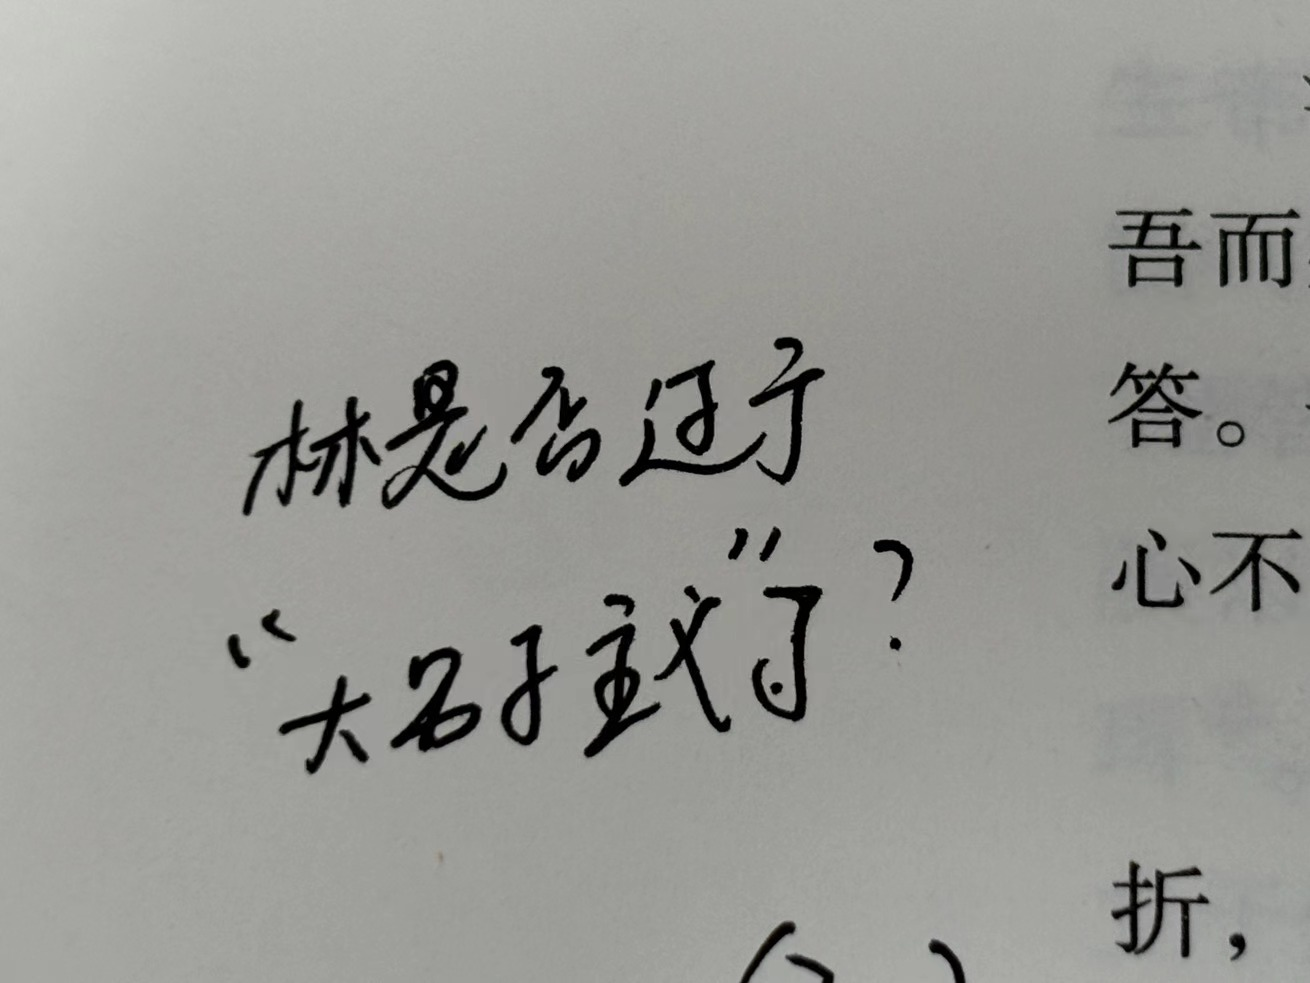 林是否过于
“大男子主义”了？
吾而
答。
心不
折，